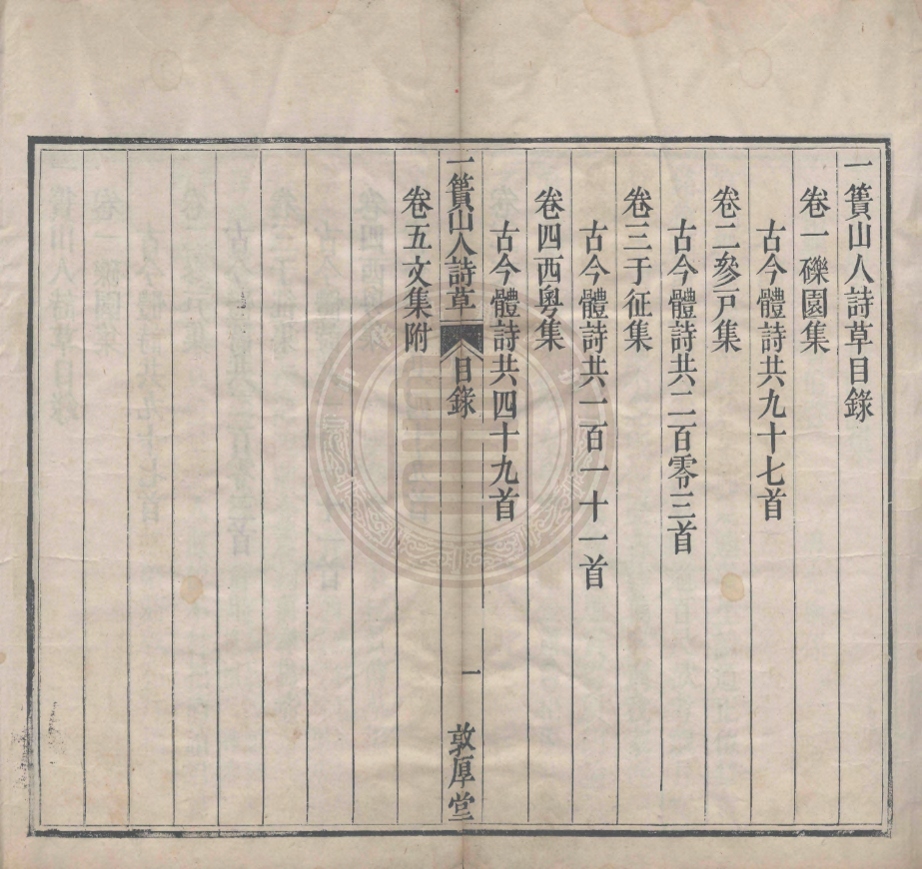 一簣山人詩草目錄
卷一礫園集
古今體詩共九十七首
卷二參戸集
古今體詩共二百零三首
卷三于征集
古今體詩共一百一十一首
卷四西粵集
古今體詩共四十九首
一簣山人詩草 目錄 一 敦厚堂
卷五文集附